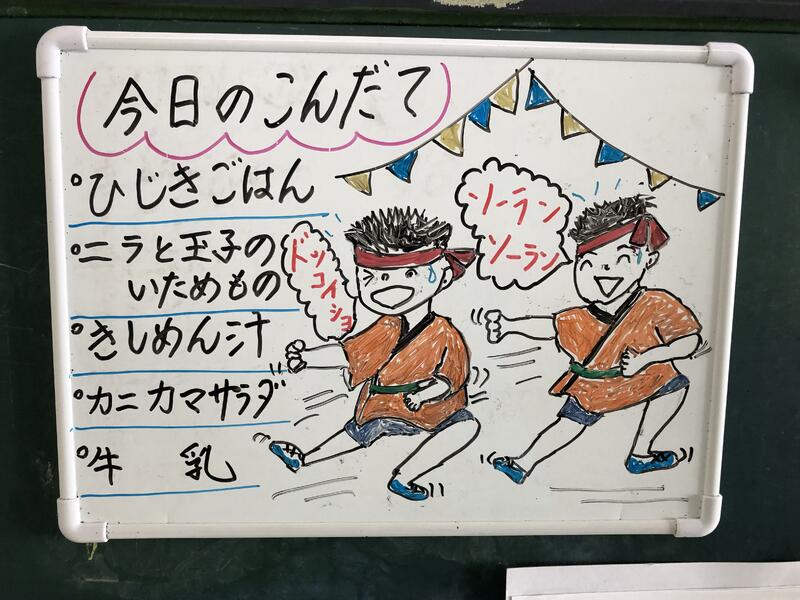 今日のこんだて
ひじきごはん
ニラと玉子の
いためもの
きしめん汁
カニカマサラダ
牛乳
ドッコイショ
ソーラン
ソーラン